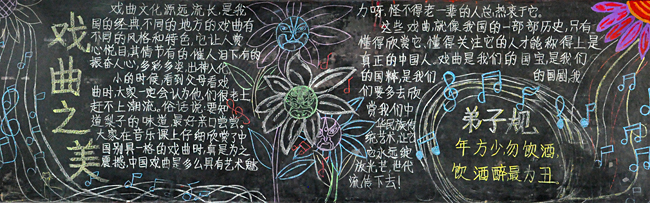 戏曲之美
戏曲文化源远流长,是我
国的经典,不同的地方的戏曲有
不同的风格和特色,它让人赏
心悦目,其情节有的催人泪下有的
振奋人心,多彩多姿,出神入化。
小的时候,看到父母看戏
曲时,大家一定会认为他们很老土
赶不上潮流。俗话说:要知
道梨子的味道,最好亲口尝尝,
大家在音乐课上仔细欣赏了中
国别具一格的戏曲时,竟是为之
震撼,中国戏曲是多么具有艺术魅
力呀,怪不得老一辈的人总热衷于它。
这些戏曲就像我国的一部部历史,只有
懂得欣赏它,懂得关注它的人才能称得上是
真正的中国人。戏曲是我们的国宝,是我们
的国粹,是我们的国剧,我
们要多去欣
赏我们中
华民族传
统艺术,让
它永远绽
放光芒,世代
流传下去!
弟子规
年方少勿饮酒,
饮酒醉最为丑